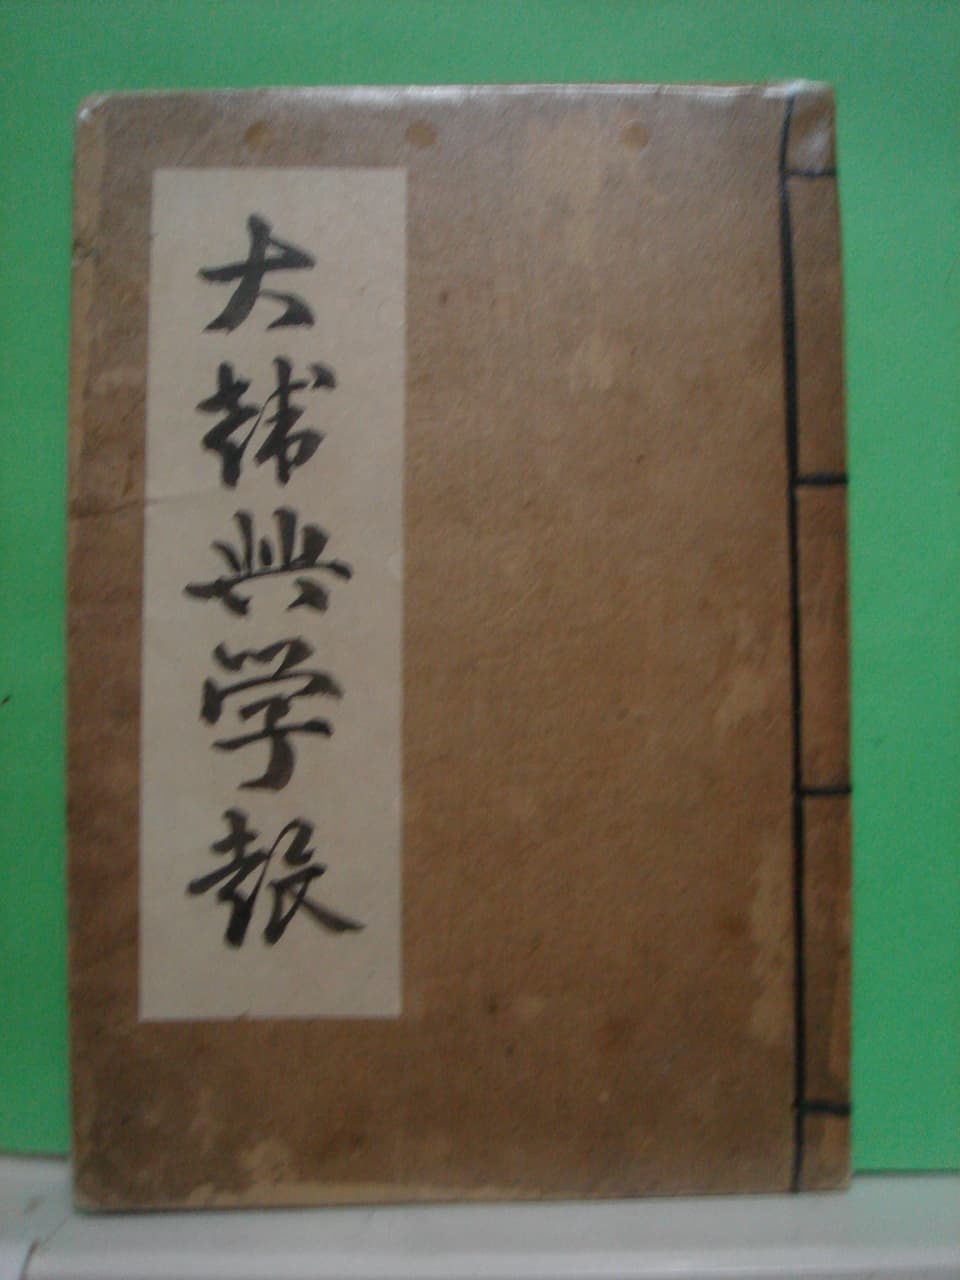 大韓興学報